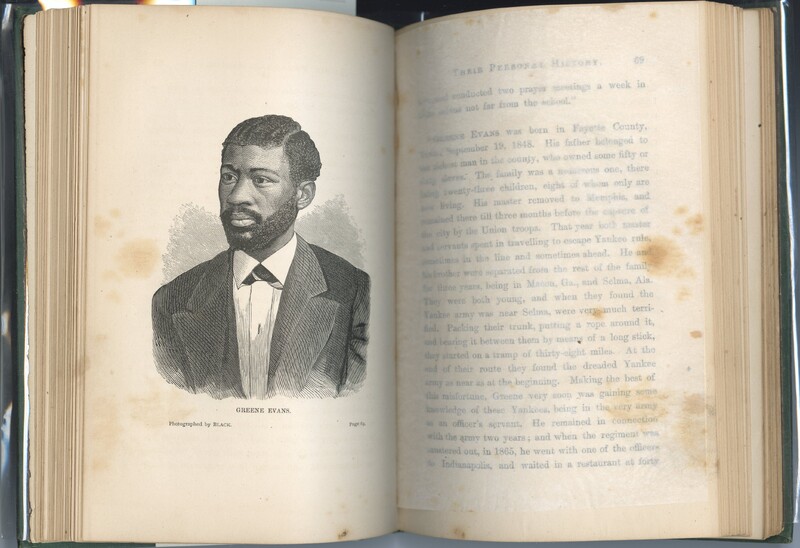 GREENE EVANS.
Photographed by BLACK.
THEIR PERSONAL HISTORY. 69
conducted two prayer meetings a week in
not far from the school."
GREENE EVANS was born in Fayette County,
September 19, 1848. His father belonged to
man in the county, who owned some fifty or
slaves. The family was a numerous one, there
twenty-three children, eight of whom only are
living. His master removed to Memphis, and
remained there till three months before the capture of
the city by the Union troops. That year both master
and servants spent in travelling to escape Yankee rule,
sometimes in the line and sometimes ahead. He and
brother were separated from the rest of the family
for three years, being in Macon, Ga., and Selma, Ala.
They were both young, and when they found the
Yankee army was near Selma, were very much terri-
fied. Packing their trunk, putting a rope around it,
and bearing it between them by means of a long stick,
they started on a tramp of thirty-eight miles. At the
end of their route they found the dreaded Yankee
army as near as at the beginning. Making the best of
this misfortune, Greene very soon was gaining some
knowledge of these Yankees, being in the very army
as an officer's servant. He remained in connection
with the army two years; and when the regiment was
mustered out, in 1865, he went with one of the officers
to Indianapolis, and waited in a restaurant at forty